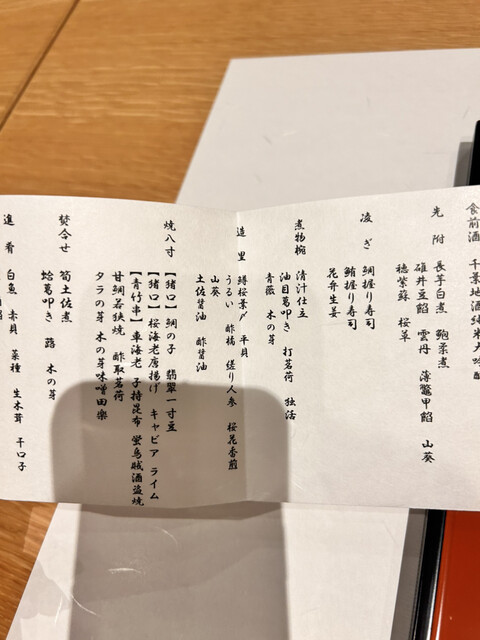 食前酒 千葉地酒純米大吟醸
先附 長芋白煮 鮑柔煮
碓井豆餡 雲丹 薄鼈甲餡 山葵
穂紫蘇 桜草
凌ぎ 鯛握り寿司
鮪握り寿司
花弁生姜
煮物椀 清汁仕立
油目葛叩き 打茗荷 独活
青蕨 木の芽
造里 鱒桜景〆 平貝
うるい 酢橘 縒り人参 桜花香煎
山葵
土佐醤油 酢醤油
焼八寸 【猪口】鯛の子 翡翠一寸豆
【猪口】桜海老唐揚げ キャビア ライム
【青竹串】車海老 子持昆布 蛍烏賊酒盗焼
甘鯛若狭焼 酢取茗荷
タラの芽 木の芽味噌田楽
焚合せ 筍土佐煮
蛤葛叩き 蕗 木の芽
進肴 白魚 赤貝 菜種 生木茸 干口子